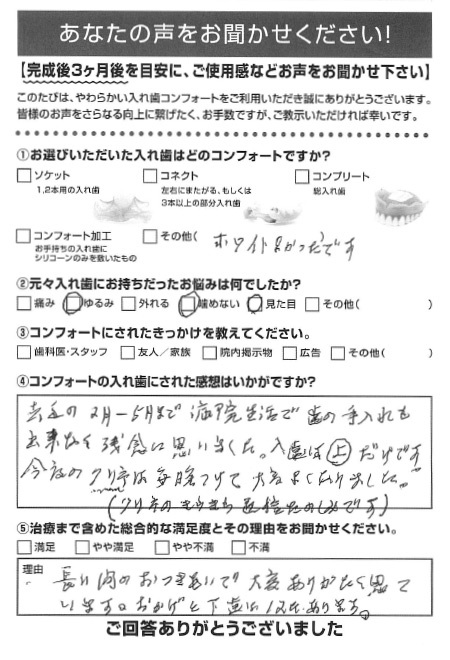 あなたの声をお聞かせください!
【完成後3ヶ月後を目安に、ご使用感などお声をお聞かせ下さい】
このたびは、やわらかい入れ歯コンフォートをご利用いただき誠にありがとうございます。
皆様のお声をさらなる向上に繋げたく、お手数ですが、ご教示いただければ幸いです。
①お選びいただいた入れ歯はどのコンフォートですか?
ソケット
1,2本用の入れ歯
コネクト
左右にまたがる、もしくは
3本以上の部分入れ歯
コンプリート
総入れ歯
コンフォート加工
お手持ちの入れ歯に
シリコーンのみを敷いたもの
その他( ホワイト です
②元々入れ歯にお持ちだったお悩みは何でしたか?
痛み ゆるみ 外れる 噛めない 見た目 その他( )
③コンフォートにされたきっかけを教えてください。
歯科医・スタッフ 友人/家族 院内掲示物 広告 その他( )
④コンフォートの入れ歯にされた感想はいかがですか?
去年の2月-5月まで 病院生活で 歯の手入れも
出来なく残念に思いました。入歯は上だけです
今度の は毎晩つけて 大分よくなりました。
( です)
⑤治療まで含めた総合的な満足度とその理由をお聞かせください。
満足 やや満足 やや不満 不満
理由
長い間のおつきあいで 大変ありがたく思って
います。おかげで下歯は あります。
ご回答ありがとうございました